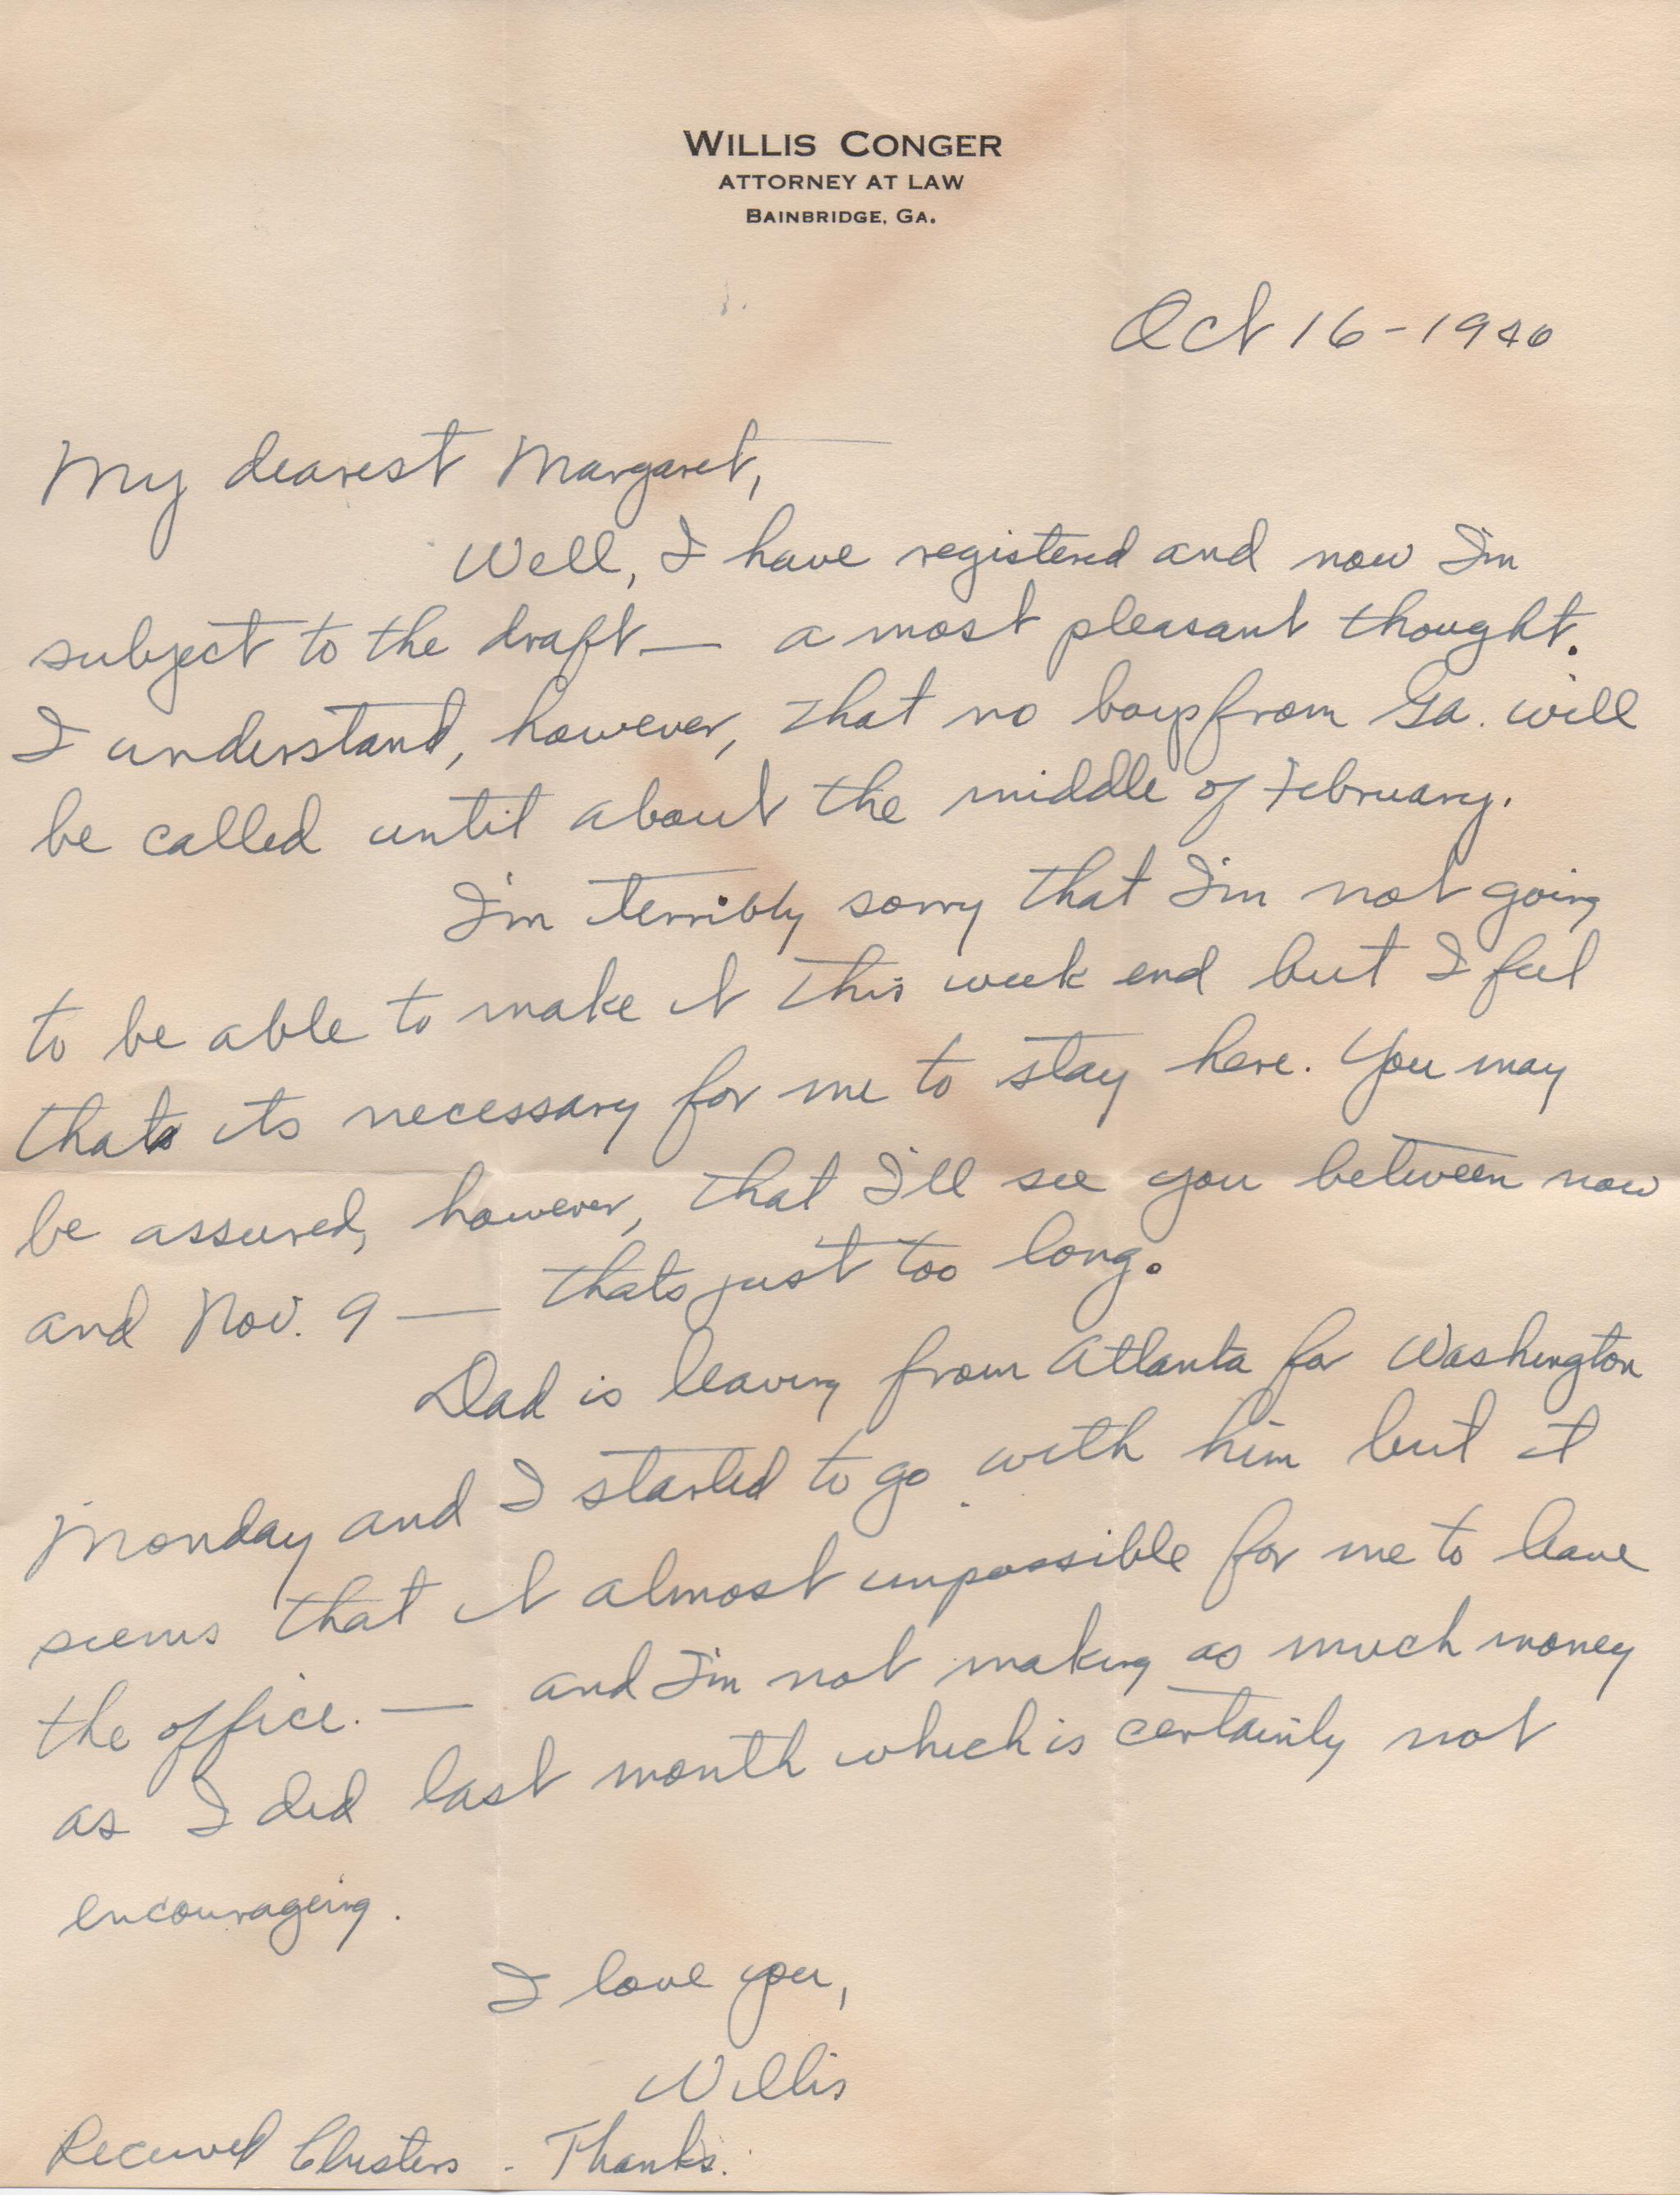 WILLIS CONGER
ATTORNEY AT LAW
BAINBRIDGE, GA.
Oct 16-1940
My dearest Margaret,
Well, I have registered and now I'm
subject to the draft — a most pleasant thought.
I understand, however, that no boys from Ga. will
be called until about the middle of February.
I'm terribly sorry that I'm not going
to be able to make it this week end but I feel
that its necessary for me to stay here. You may
be assured, however, that I'll see you between now
and Nov. 9 — thats just too long.
Dad is leaving from Atlanta for Washington
Monday and I started to go with him but it
seems that it almost impossible for me to leave
the office. — and I'm not making as much money
as I did last month which is certainly not
encourageing.
I love you,
Willis
Received Clusters - Thanks.